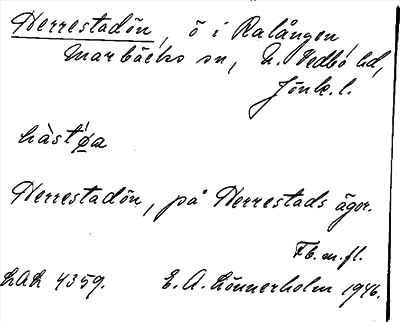 Herrestadön, ö i Ralången
Marbäcks sn, N. Vedbo hd,
Jönk. l.
hàst ø̠a
Herrestadön, på Herrestads ägor.
Fb. m. fl.
LAL 4359. E. A. Lönnerholm 1946.